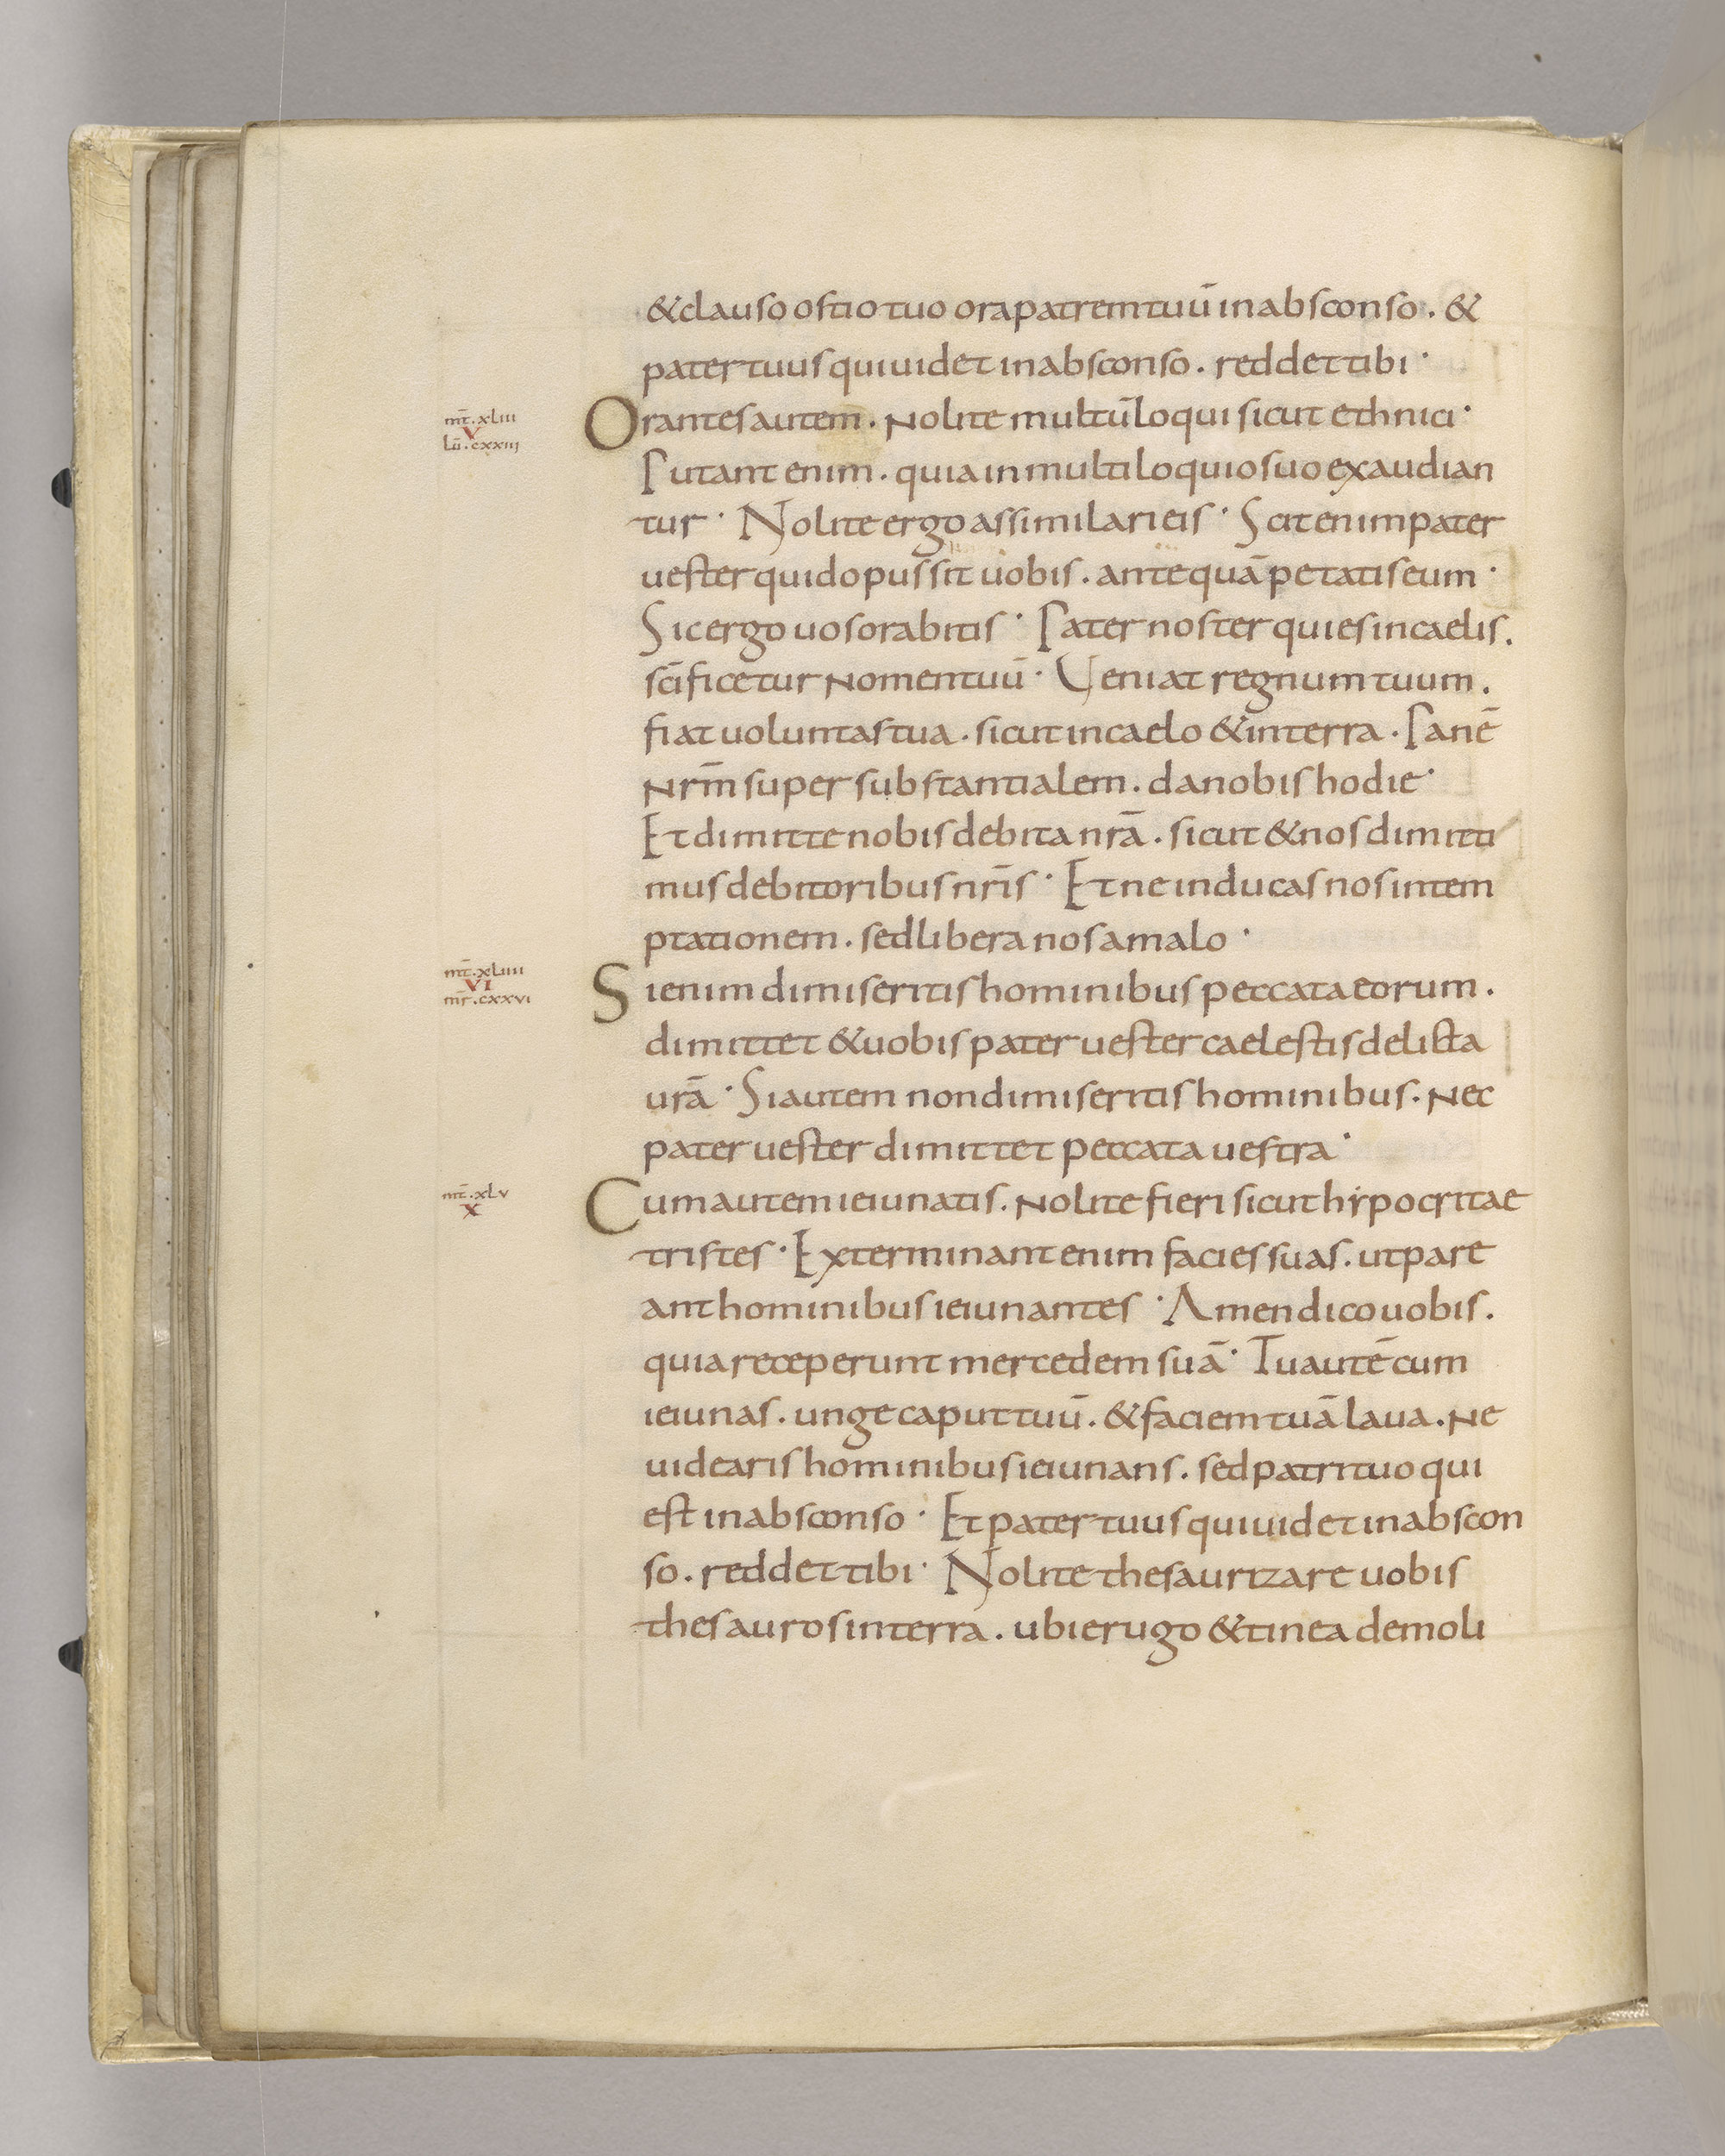 & clauso ostio tuo ora patrem tuū in absconso . &
pater tuus qui uidet in absconso . reddet tibi ·
mt̄ . xLiii
V
lū . cxxiii
Orantes autem . Nolite multū loqui sicut ethnici ·
Putant enim . quia in multiloquio suo exaudian
tur · Nolite ergo assimilari eis · Scit enim pater
uester quid opus sit uobis . antequā petatis eum ·
Sic ergo uos orabitis · Pater noster qui es in caelis .
sc̄ificetur Nomen tuū · Veniat regnum tuum .
fiat uoluntas tua . sicut in caelo & in terra . Panē
Nr̄m supersubstantialem . da nobis hodie ·
Et dimitte nobis debita nr̄a . sicut & nos dimitti
mus debitoribus nr̄is · Et ne inducas nos in tem
ptationem . sed libera nos a malo ·
mt̄ . xLiiii
VI
mr̄ . cxxvi
Si enim dimiseritis hominibus peccata eorum .
dimittet & uobis pater uester caelestis delicta
ur̄a · Si autem non dimiseritis hominibus . Nec
pater uester dimittet peccata uestra ·
mt̄ . xLv
X
Cum autem ieiunatis . Nolite fieri sicut hẏpocritae
tristes · Exterminant enim facies suas . ut pare
ant hominibus ieiunantes · Amen dico uobis .
quia receperunt mercedem suā · Tu autē cum
ieiunas . unge caput tuū . & faciem tuā laua . Ne
uidearis hominibus ieiunans . sed patri tuo qui
est in absconso · Et pater tuus qui uidet in abscon
so . reddet tibi · Nolite thesaurizare uobis
thesauros in terra . ubi erugo & tinea demoli